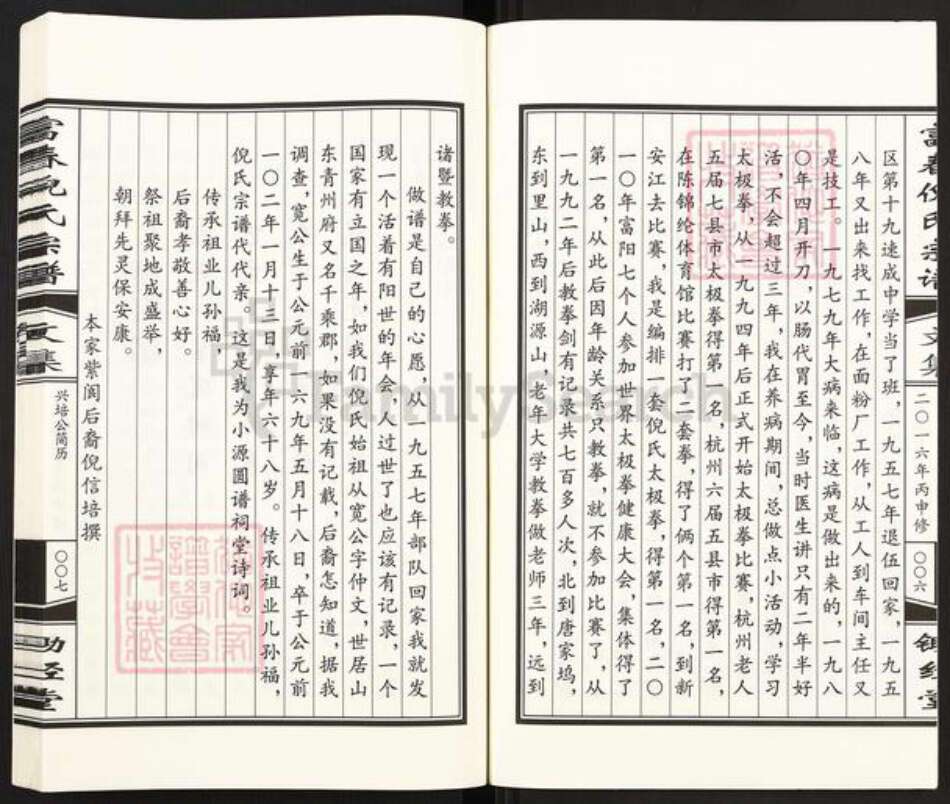 富春倪氏宗谱
文集
二〇一六年丙申修
〇〇六
锄经堂
区第十九速成中学当了班，一九五七年退伍回家，一九五
八年又出来找工作，在面粉厂工作，从工人到车间主任又
是技工。一九七九年大病来临，这病是做出来的，一九八
〇年四月开刀，以肠代胃至今，当时医生讲只有二年半好
活，不会超过三年，我在养病期间，总做点小活动，学习
太极拳，从一九九四年后正式开始太极拳比赛，杭州老人
五届七县市太极拳得第一名，杭州六届五县市得第一名，
在陈锦纶体育馆比赛打了二套拳，得了俩个第一名，到新
安江去比赛，我是编排一套倪氏太极拳，得第一名，二〇
一〇年富阳七个人参加世界太极拳健康大会，集体得了
第一名，从此后因年龄关系只教拳，就不参加比赛了，从
一九九二年后教拳剑有记录共七百多人次，北到唐家坞，
东到里山，西到湖源山，老年大学教拳做老师三年，远到
诸暨教拳。
做谱是自己的心愿，从一九五七年部队回家我就发
现一个活着有阳世的年会，人过世了也应该有记录，一个
国家有立国之年，如我们倪氏始祖从宽公字仲文，世居山
东青州府又名千乘郡，如果没有记载，后裔怎知道，据我
调查，宽公生于公元前一六九年五月十八日，卒于公元前
一〇二年一月十三日，享年六十八岁。传承祖业儿孙福，
倪氏宗谱代代亲。这是我为小源圆谱祠堂诗词。
传承祖业儿孙福，
后裔孝敬善心好。
祭祖聚地成盛举，
朝拜先灵保安康。
本家紫阆后裔倪信培撰
富春倪氏宗谱
文集
兴培公简历
〇〇七
锄经堂
FamilySearch